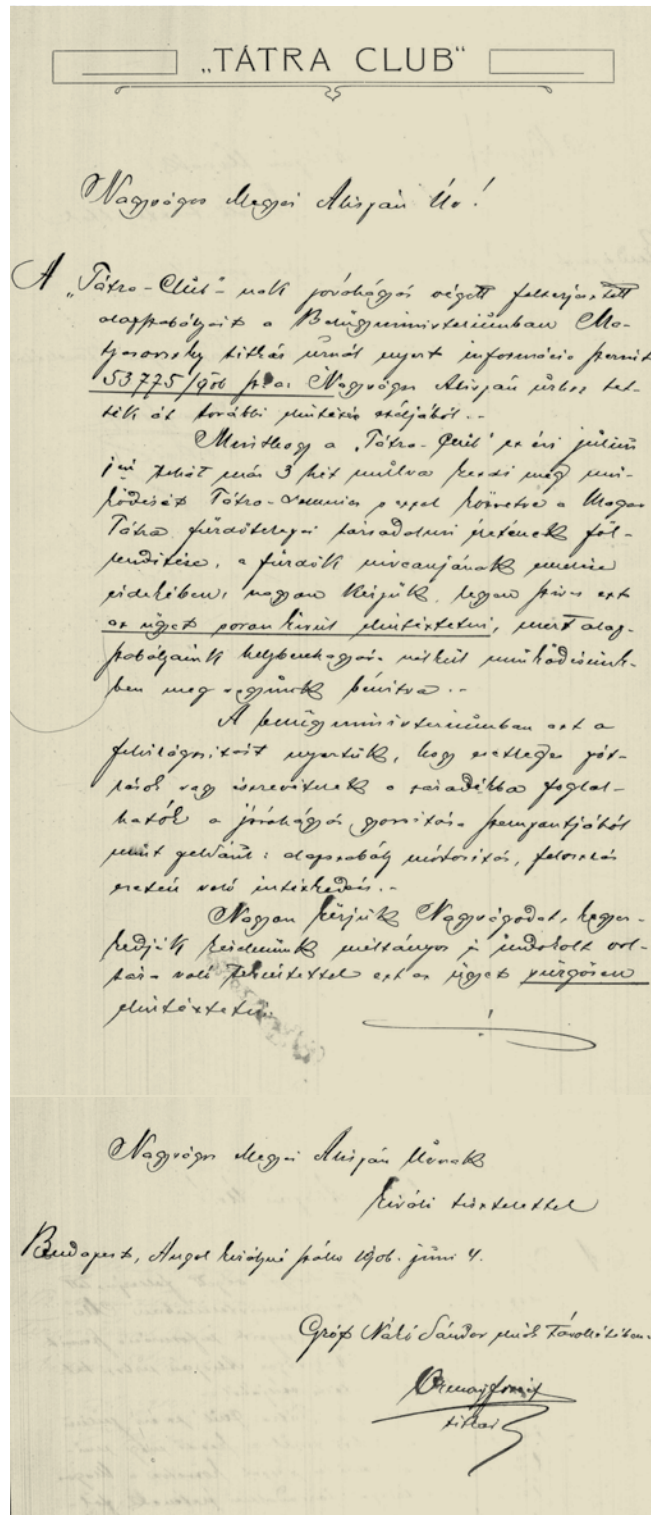 „TÁTRA CLUB“
Nagyságos Megyei Alispán Úr!
A „Tátra-Club"-nak jóváhagyás végett felterjesztett
alapszabályait a Belügyministeriumban Ma-
tyasovszky titkár úrnál nyert információ szerint
53775/906 sz. a. Nagyságos Alispán úrhoz tet-
ték át további elintézés céljából.-
Minthogy a „Tátra-Club" ez évi július
1jén tehát már 3 hét múlva kezdi meg mű-
ködését Tátra-Lomnic s ezzel követve a Magas
Tátra fürdőtelepei társadalmi életének föl-
lendítése, a fürdők nivaujának emelése
érdekében, nagyon kérjük, legyen szíves ezt
az ügyet soron kívül elintéztetni, mert alap-
szabályaink helybenhagyása nélkül működésünk-
ben meg vagyunk bénítva.-
A belügyministeriumban azt a
felvilágosítást nyertük, hogy esetleges pót-
lások vagy észrevételek a záradékba foglal-
hatók a jóváhagyás gyorsítása szempontjából
mint például: alapszabály módosítás, feloszlás
esetén való intézkedés.-
Nagyon kérjük Nagyságodat, kegyes-
kedjék kérelmünk méltányos és indokolt vol-
tára való tekintettel ezt az ügyet sürgősen
elintéztetni.
Nagyságos Megyei Alispán Úrnak
kiváló tisztelettel
Budapest, Angol királyné szálló 1906. júni 4.
Gróf Nákó Sándor elnök távollétében
titkár